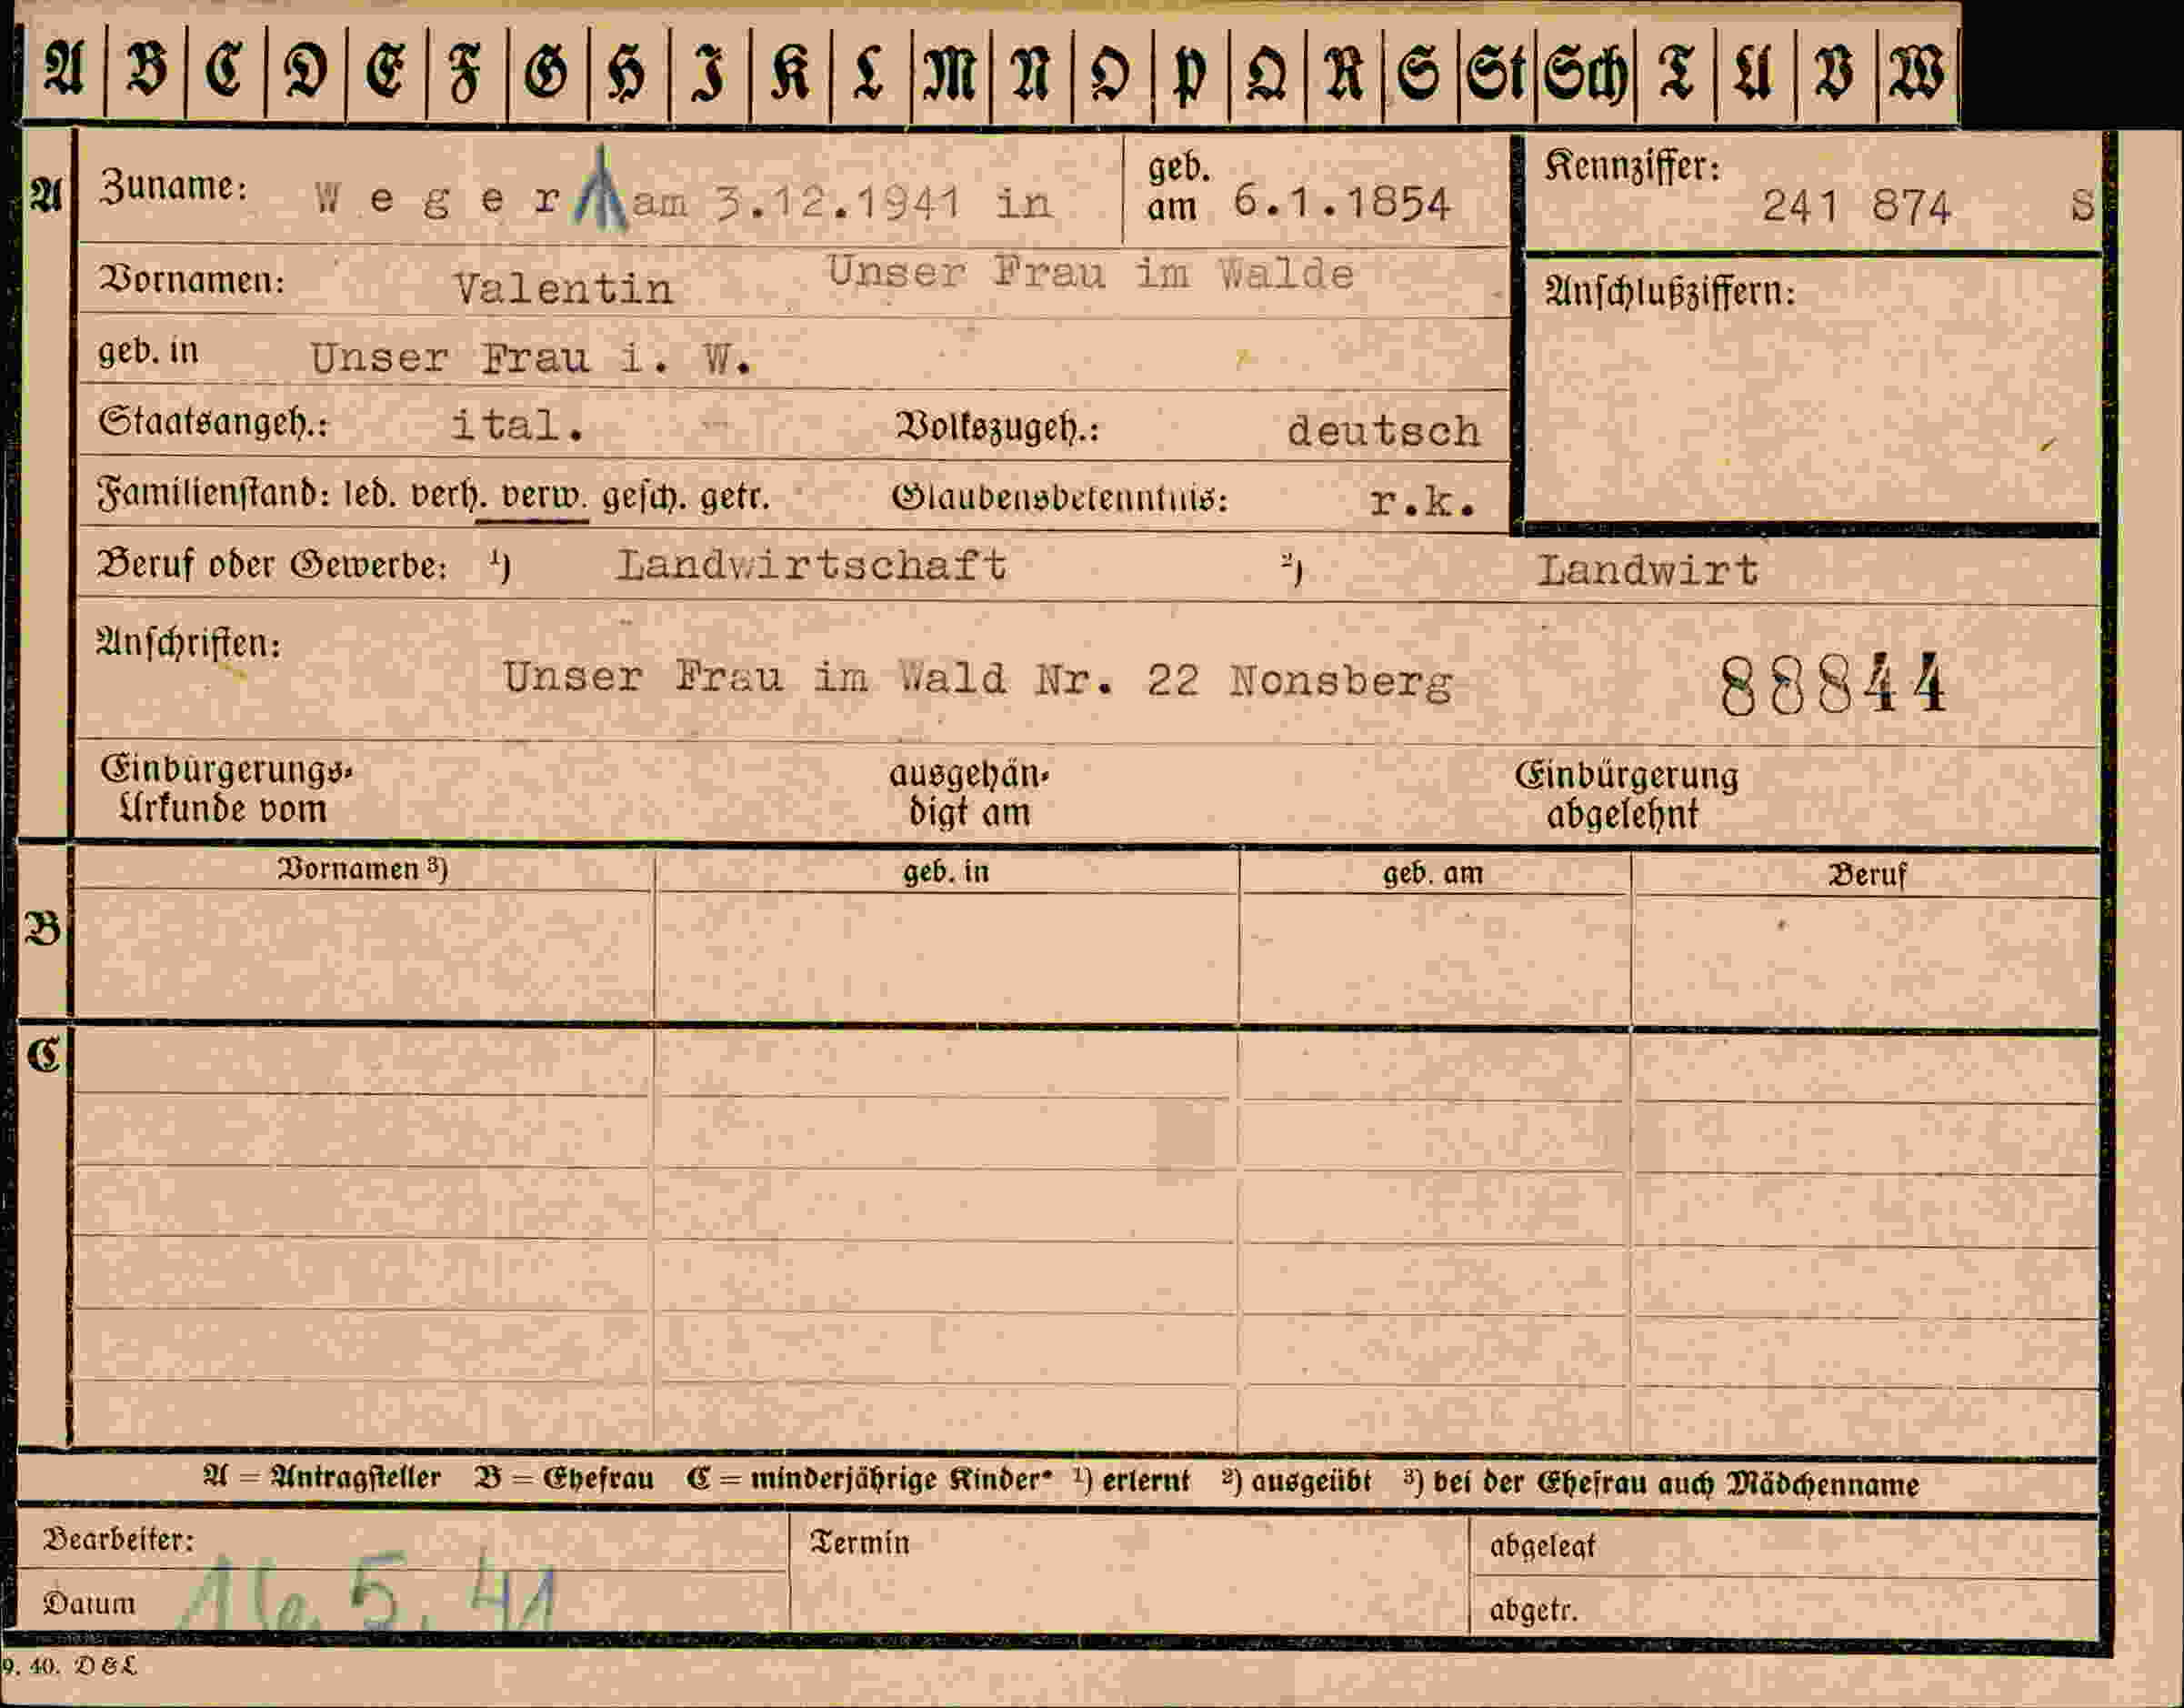 A B C D E F G H I K L M N O P Q R S St Sch T U V W
A Zuname: Weger am 3.12.1941 in geb. am 6.1.1854 Kennziffer: 241 874 S
Vornamen: Valentin Unser Frau im Walde Anschlußziffern:
geb. in Unser Frau i. W.
Staatsangeh.: ital. Volkszugeh.: deutsch
Familienstand: led. verh. verw. gesch. getr. Glaubensbekenntnis: r.k.
Beruf oder Gewerbe: ¹) Landwirtschaft ²) Landwirt
Anschriften:
Unser Frau im Wald Nr. 22 Nonsberg 88844
Einbürgerungs- ausgehän- Einbürgerung
Urkunde vom digt am abgelehnt
Vornamen ³) geb. in geb. am Beruf
B
C
A = Antragsteller B = Ehefrau C = minderjährige Kinder ¹) erlernt ²) ausgeübt ³) bei der Ehefrau auch Mädchenname
Bearbeiter: Termin abgelegt
Datum 16.5.41 abgetr.
9. 40. D & L